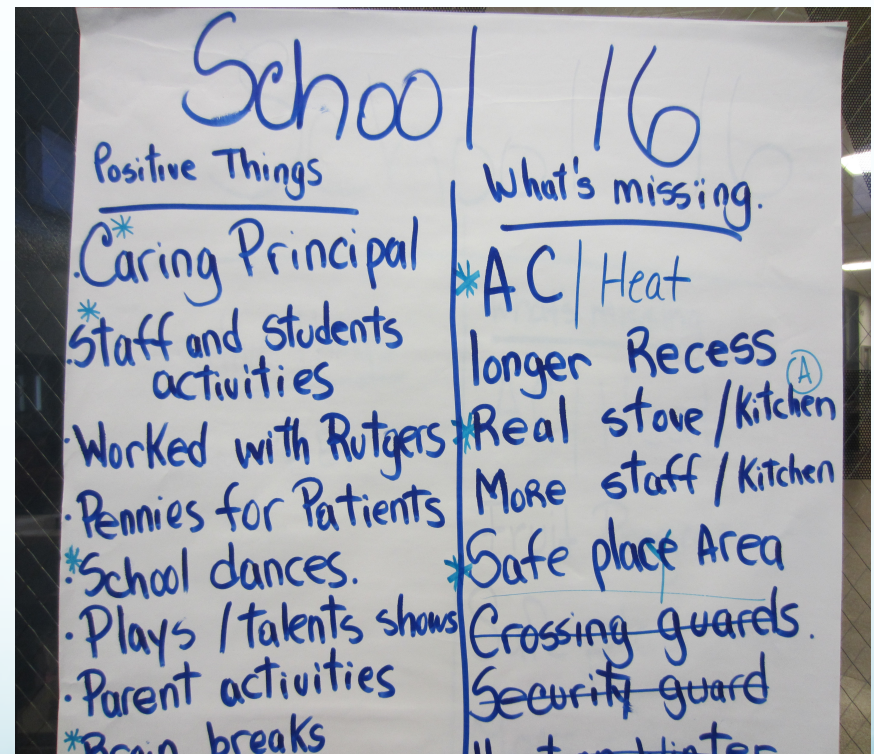 School 16
Positive Things
* Caring Principal
* Staff and students
activities
· Worked with Rutgers
· Pennies for Patients
* School dances.
· Plays / talents shows
· Parent activities
* Brain breaks
What's missing.
* AC | Heat
longer Recess
A
* Real stove / Kitchen
More staff / Kitchen
* Safe place Area
Crossing guards.
Security guard